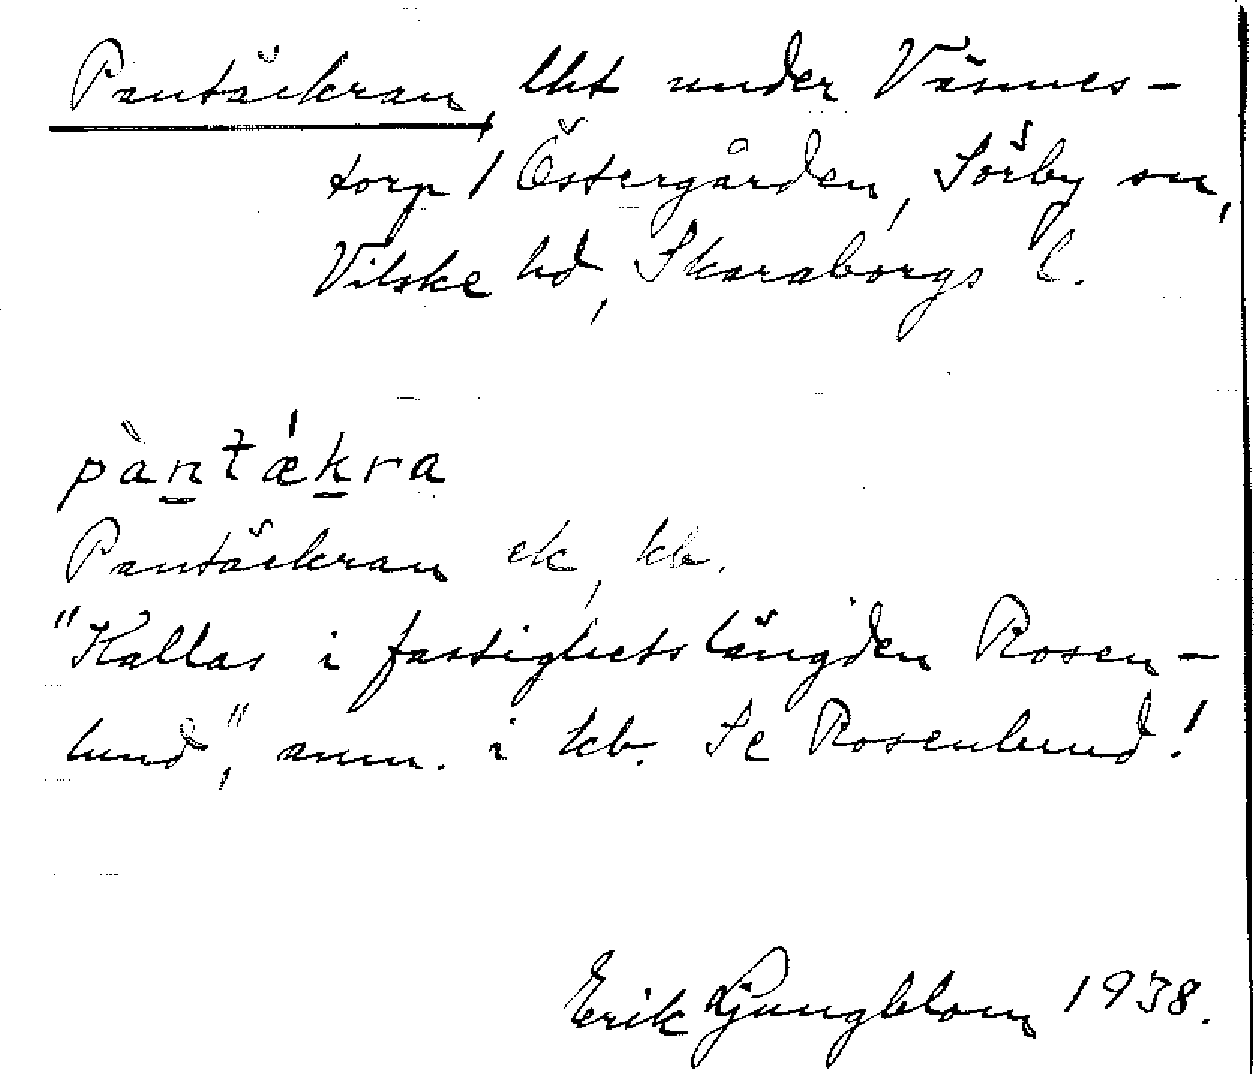 Pantäckran, lht under Väsmes-
torp 1 Östergården, Sörby sn,
Vilske hd, Skaraborgs l.
pàn̲tǽk̲ra
Pantäckran ek, kb.
"Kallas i fastighetslängden Rosen-
lund", anm. i kb. Se Rosenlund!
Erik Ljungblom 1938.